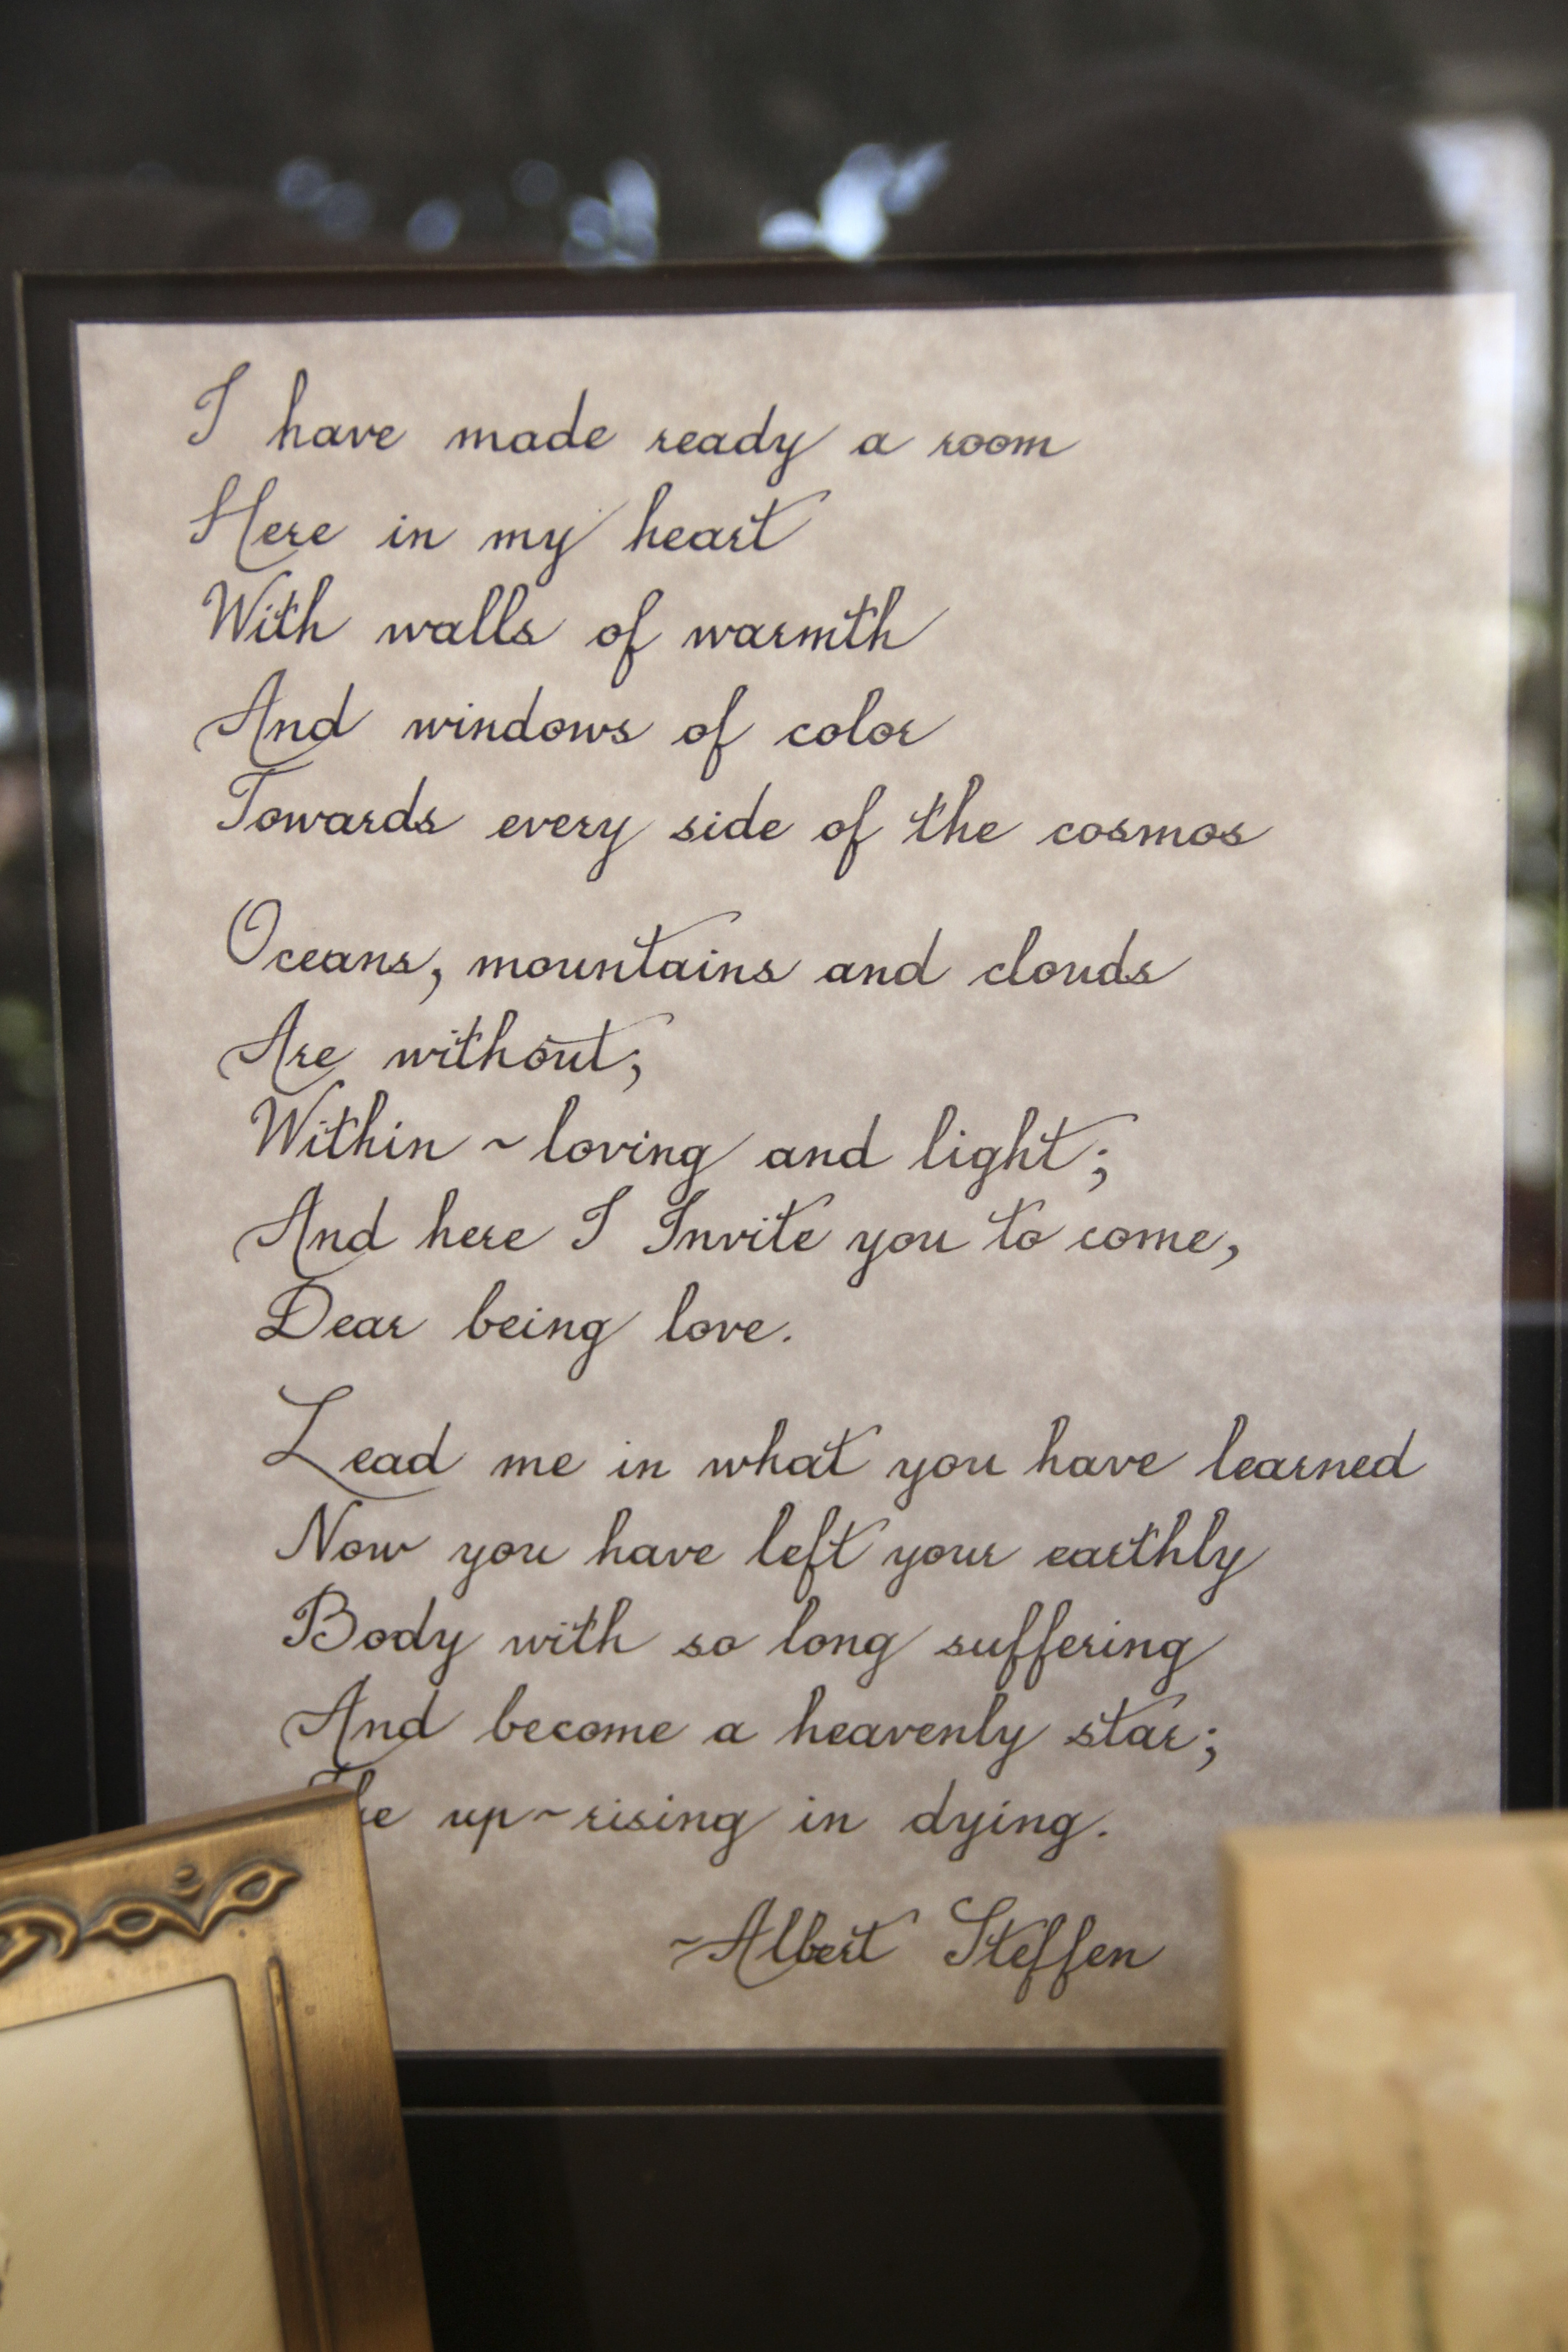 I have made ready a room
Here in my heart
With walls of warmth
And windows of color
Towards every side of the cosmos
Oceans, mountains and clouds
Are without;
Within ~ loving and light;
And here I Invite you to come,
Dear being love.
Lead me in what you have learned
Now you have left your earthly
Body with so long suffering
And become a heavenly star;
The up~rising in dying.
~Albert Steffen